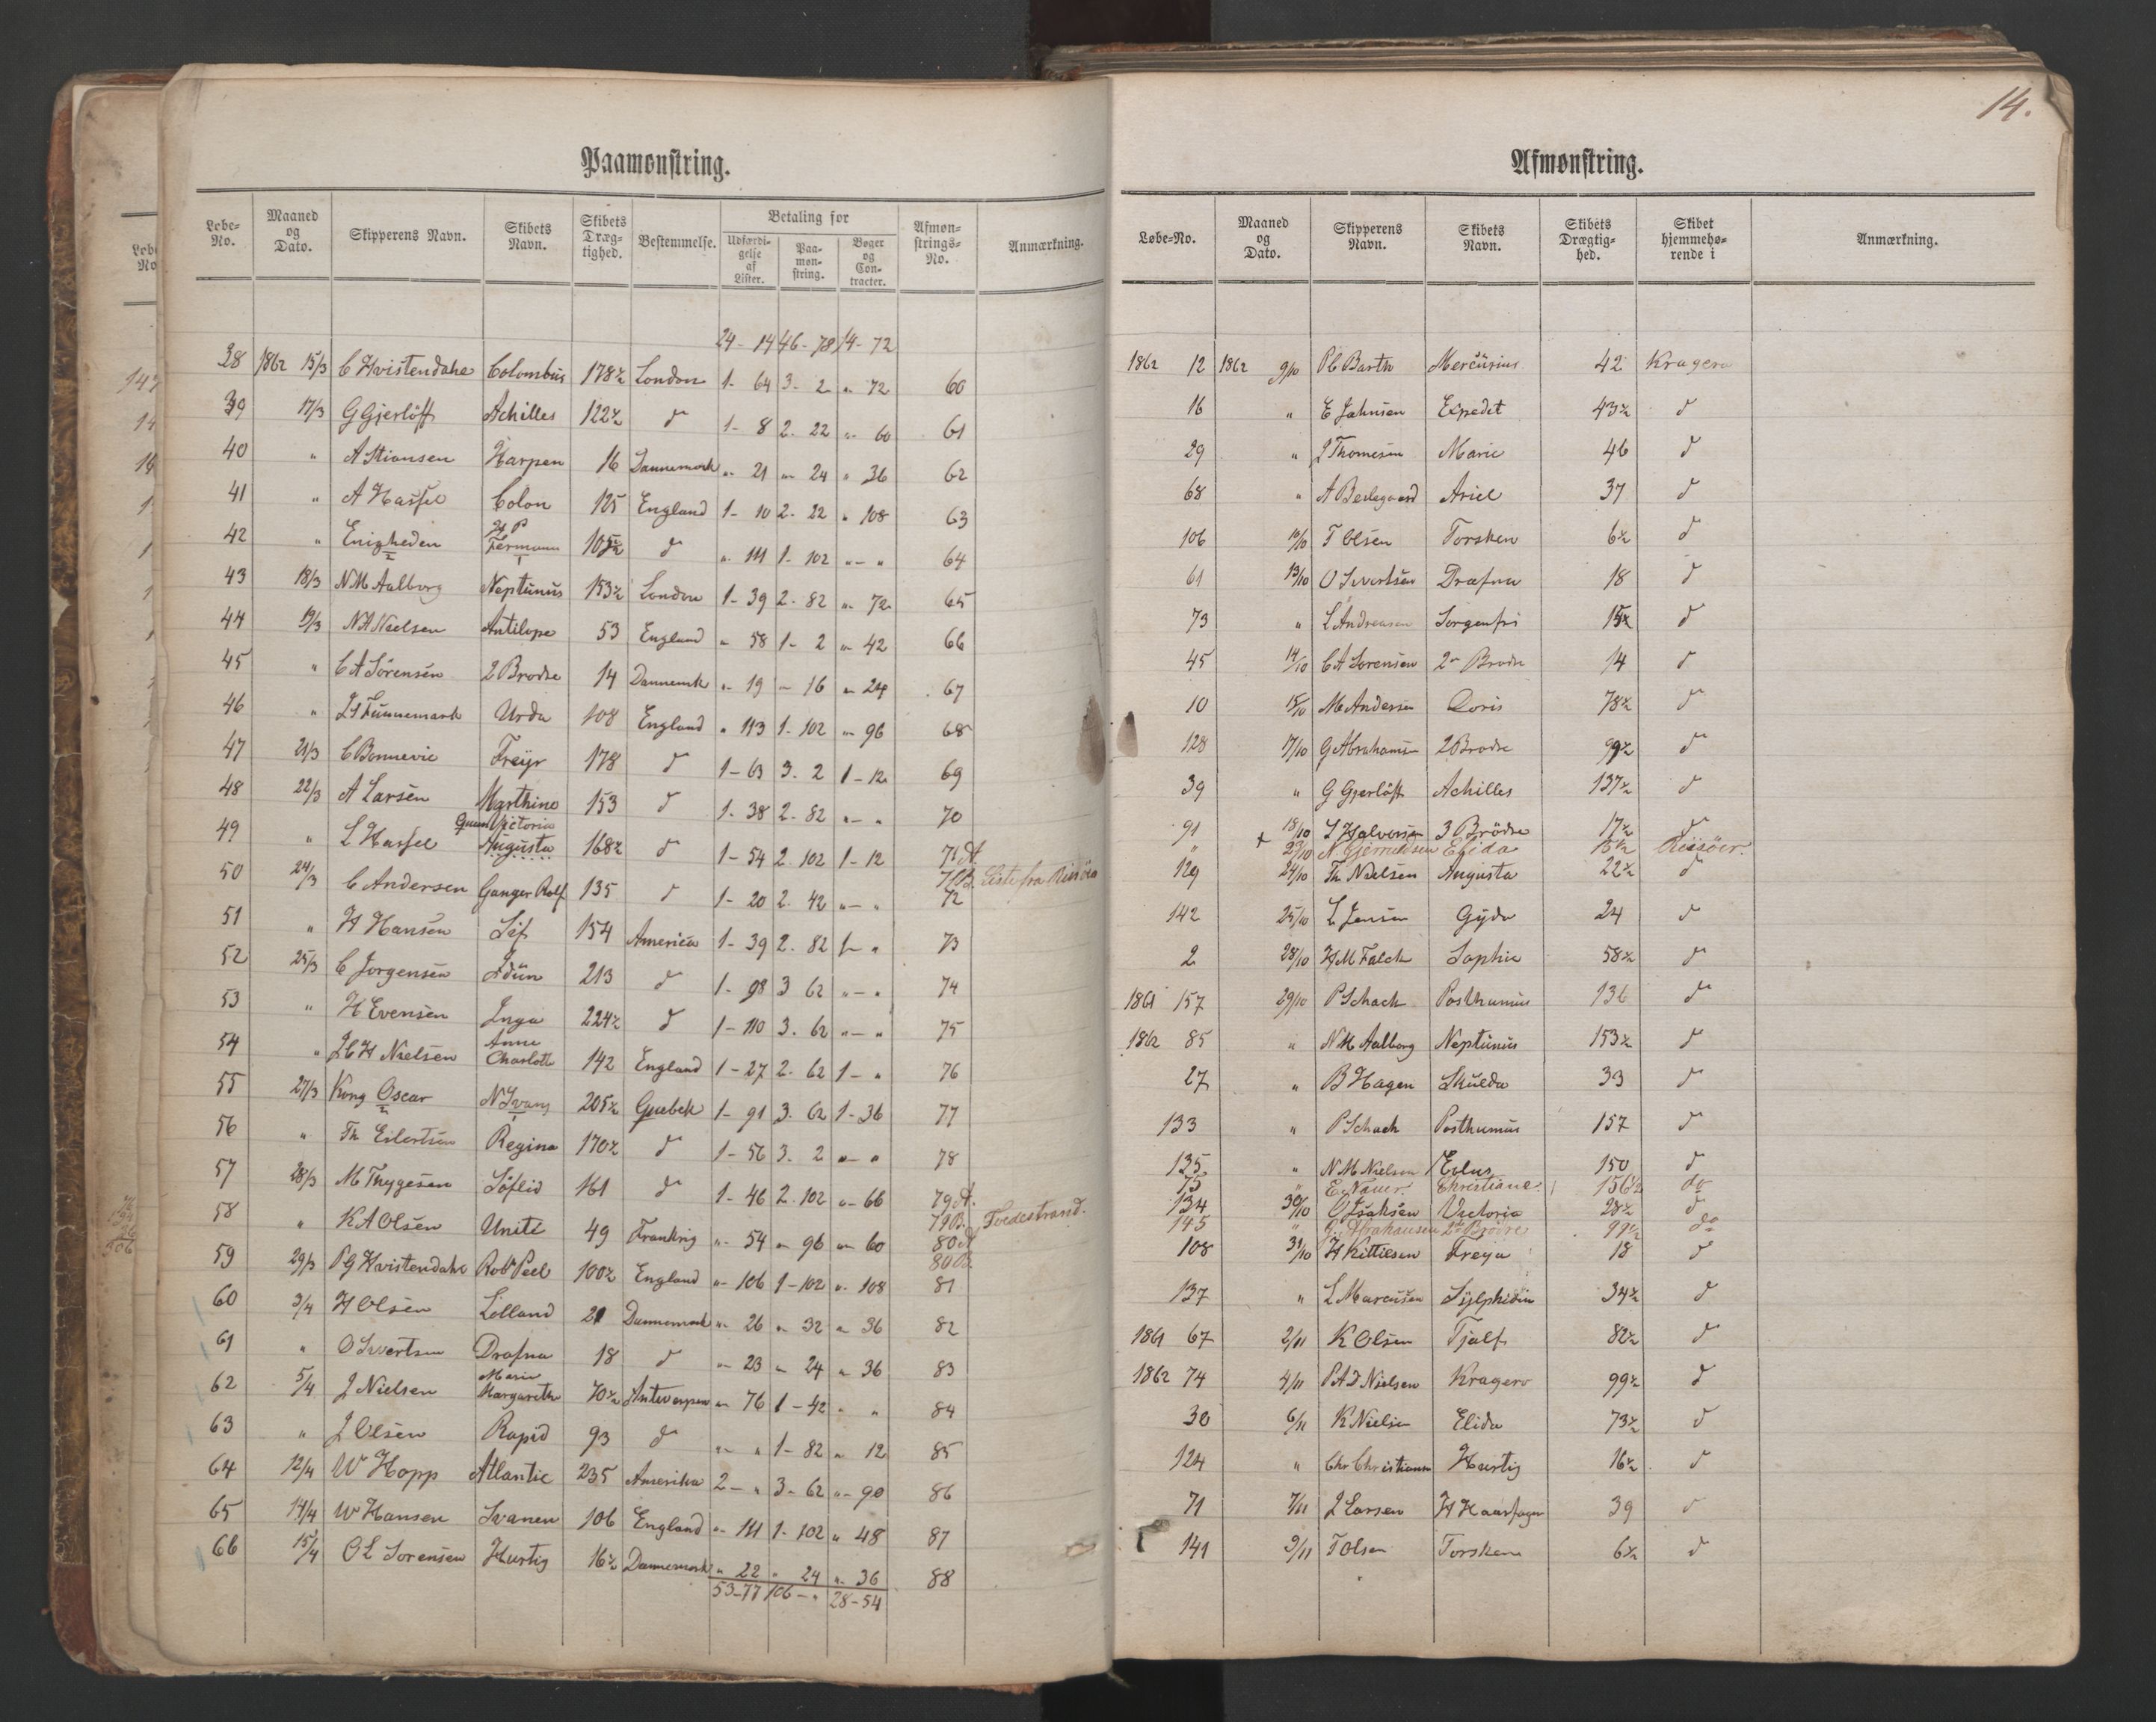 Paamønstring.
Løbe-No. Maaned og Dato. Skipperens Navn. Skibets Navn. Skibets Dræg-tighed. Bestemmelse. Betaling for Udfærdi-gelse af Lister. Paa-møn-string. Bøger og Con-tracter. Afmøn-strings-No. Anmærkning.
24-14 46-78 14-72
38 1862 15/3 C Hvistendahl Colombus 178½ London 1-64 3-2 "-72 60
39 17/3 G Gjerlöff Achilles 122½ d 1-8 2-22 "-60 61
40 " A Stiansen Harpen 16 Dannemark "-21 "-24 "-36 62
41 " A Hassel Colon 125 England 1-10 2-22 "-108 63
42 " Enigheden 2 H P Fermann 1 105½ d "-111 1-102 "-" 64
43 18/3 N M Aalborg Neptunus 153½ London 1-39 2-82 "-72 65
44 19/3 N A Nielsen Antilope 53 England "-58 1-2 "-42 66
45 " C A Sörensen 2 Brodre 14 Dannemk "-19 "-16 "-24 67
46 " Urda 108 England "-113 1-102 "-96 68
47 21/3 C Bonnevie Freyr 178 d 1-63 3-2 1-12 69
48 22/3 A Larsen Marthine 153 d 1-38 2-82 "-" 70
49 " L Hassel Queen Victoria Augusta 168½ d 1-54 2-102 1-12 71 A.
71 B. Liste fra Risöer
50 24/3 C Andersen Ganger Rolf 135 d 1-20 2-42 "-" 72
51 " H Hansen Sif 154 America 1-39 2-82 1-" 73
52 25/3 C Jorgensen Idun 213 d 1-98 3 62 "-" 74
53 " H Evensen Inga 224½ d 1-110 3-62 "-" 75
54 " J C H Nielsen Anne Charlotte 142 England 1-27 2-62 1-" 76
55 27/3 Kong Oscar 2 N Ivars 1 205½ Quebek 1-91 3-62 1-36 77
56 " Th Eilertsen Regina 170½ d 1-56 3-2 "-" 78
57 28/3 M Thygesen Söflid 161 d 1-46 2-102 "-66 79 A.
79 B. Tvedestrand.
58 " K A Olsen Unité 49 Frankrig "-54 "-96 "-60 80 A
80 B.
59 29/3 P G Hvistendahl Robt Peel 100½ England "-106 1-102 "-108 81
60 3/4 H Olsen Lolland 21 Dannemark "-26 "-32 "-36 82
61 " O Sivertsen Drafna 18 d "-23 "-24 "-36 83
62 5/4 J Nielsen Maria Margarethe 70½ Antverpen "-76 1-42 " " 84
63 " J Olsen Rapid 93 d "-" 1-82 "-12 85
64 12/4 W Hopp Atlantic 235 Amerika 2-" 3-62 "-90 86
65 14/4 W Hansen Svanen 106 England "-111 1-102 "-48 87
66 15/4 O L Sorensen Hurtig 16½ Dannemark "-22 "-24 "-36 88
53-77 106-" 28-54
14.
Afmønstring.
Løbe-No. Maaned og Dato. Skipperens Navn. Skibets Navn. Skibets Drægtig-hed. Skibet hjemmehø-rende i Anmærkning.
1862 12 1862 9/10 P C Barth Mercurius 42 Kragero
16 " E Jahnsen Expedit 43½ d
29 " J Thomesen Marie 46 d
68 " A Berlegaard Ariel 37 d
106 10/10 T Olsen Torsken 6½ d
61 13/10 O Sivertsen Drafna 18 d
73 " L Andreasen Sorgenfri 15½ d
45 14/10 C A Sorensen 2 Brodre 14 d
10 15/10 M Andersen Doris 78½ d
128 17/10 G Abrahamsen 2 Brodre 99½ d
39 " G Gjerlöff Achilles 137½ d
91 18/10 S Halvorsen 3 Brödre 17½ d
" + 23/10 N Gjermundsen Elida Riisöer.
129 24/10 Th Nielsen Augusta 22½ d
142 25/10 L Jensen Gyda 24 d
2 28/10 H M Falck Sophie 58½ d
1861 157 29/10 P Schack Posthumus 136 d
1862 85 " N M Aalborg Neptunus 153½ d
27 " B Hagen Skulda 33 d
133 " P Schack Posthumus 157 d
135 " N M Nielsen Eolus 150 d
75 " E. Nauer. Christiane. 156½ do
134 30/10 O Isaksen Victoria 28½ d
145 " G. Abrahamsen 2de Brödre 99½ do
108 31/10 H Kittilsen Freya 18 d
137 " L Marcussen Sylphiden 34½ d
1861 67 2/11 K Olsen Tjalf 82½ d
1862 74 4/11 P A D Nielsen Kragero 99½ d
30 6/11 K Nielsen Elida 73½ d
124 " Chr Christiansen Hurtig 16½ d
71 7/11 J Larsen H Haarfager 39 d
141 9/11 T Olsen Torsken 6½ d